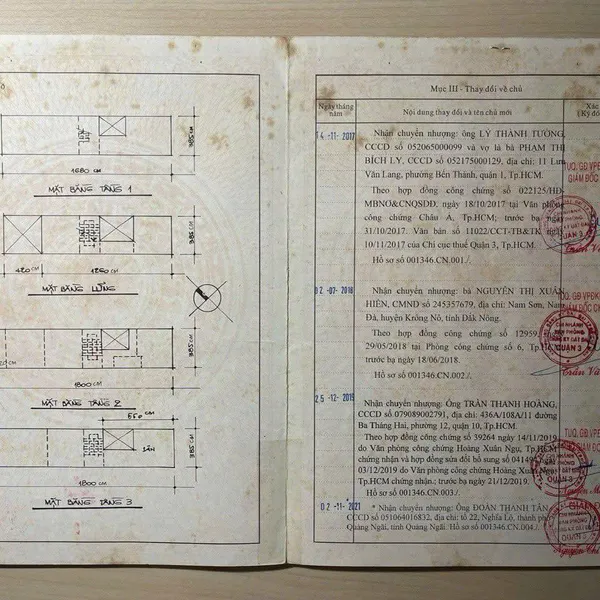 385 CM
1680 CM
MẶT BẰNG TẦNG 1
385 CM
420 CM
1260 CM
MẶT BẰNG LỬNG
385 CM
1800 CM
MẶT BẰNG TẦNG 2
550 CM
SÂN
385 CM
1800 CM
MẶT BẰNG TẦNG 3
Mục III - Thay đổi về chủ
Ngày tháng
năm
Nội dung thay đổi và tên chủ mới
Xác
(Ký đó
14 -11- 2017
Nhận chuyển nhượng: ông LÝ THÀNH TƯỜNG,
CCCD số 052065000099 và vợ là bà PHẠM THỊ
BÍCH LY, CCCD số 052175000129, địa chỉ: 11 Lưu
Văn Lang, phường Bến Thành, quận 1, Tp.HCM.
Theo hợp đồng công chứng số 022125/HĐ-
MBNO&CNQSDĐ, ngày 18/10/2017 tại Văn phòng
công chứng Châu Á, Tp.HCM; trước bạ
31/10/2017. Văn bản số 11022/CCT-TB&TK ngày
10/11/2017 của Chi cục thuế Quận 3, Tp.HCM.
Hồ sơ số 001346.CN.001./.
TUQ. GĐ VPĐK
GIÁM ĐỐC
QUẬN 3
02 -07- 2018
Nhận chuyển nhượng: bà NGUYỄN THỊ XUÂN
HIÊN, CMND số 245357679, địa chỉ: Nam Sơn, Nam
Đà, huyện Krông Nô, tỉnh Đắk Nông.
Theo hợp đồng công chứng số 12959
29/05/2018 tại Phòng công chứng số 6, Tp.HCM
trước bạ ngày 18/06/2018.
Hồ sơ số 001346.CN.002./.
CHI NHÁNH
VĂN PHÒNG
ĐĂNG KÝ ĐẤT ĐAI
QUẬN 3
25 -12- 2019
Nhận chuyển nhượng: Ông TRẦN THANH HOÀNG,
CCCD số 079089002791, địa chỉ: 436A/108A/11 đường
Ba Tháng Hai, phường 12, quận 10, Tp.HCM.
Theo hợp đồng công chứng số 39264 ngày 14/11/2019
do Văn phòng công chứng Hoàng Xuân Ngụ, Tp.HCM
chứng nhận và hợp đồng sửa đổi bổ sung số 041494
03/12/2019 do Văn phòng công chứng Hoàng Xuân Ngụ
Tp.HCM chứng nhận.; trước bạ ngày 21/12/2019.
Hồ sơ số 001346.CN.003./.
TUQ. GĐ VPĐ
QUẬN 3
02 -11- 2021
* Nhận chuyển nhượng: Ông ĐOÀN THANH TÂN
CCCD số 051064016832, địa chỉ: tổ 22, Nghĩa Lộ, thành phố
Quảng Ngãi, tỉnh Quảng Ngãi. Hồ sơ số 001346.CN.004./.
CHI NHÁNH
VĂN PHÒNG
QUẬN 3